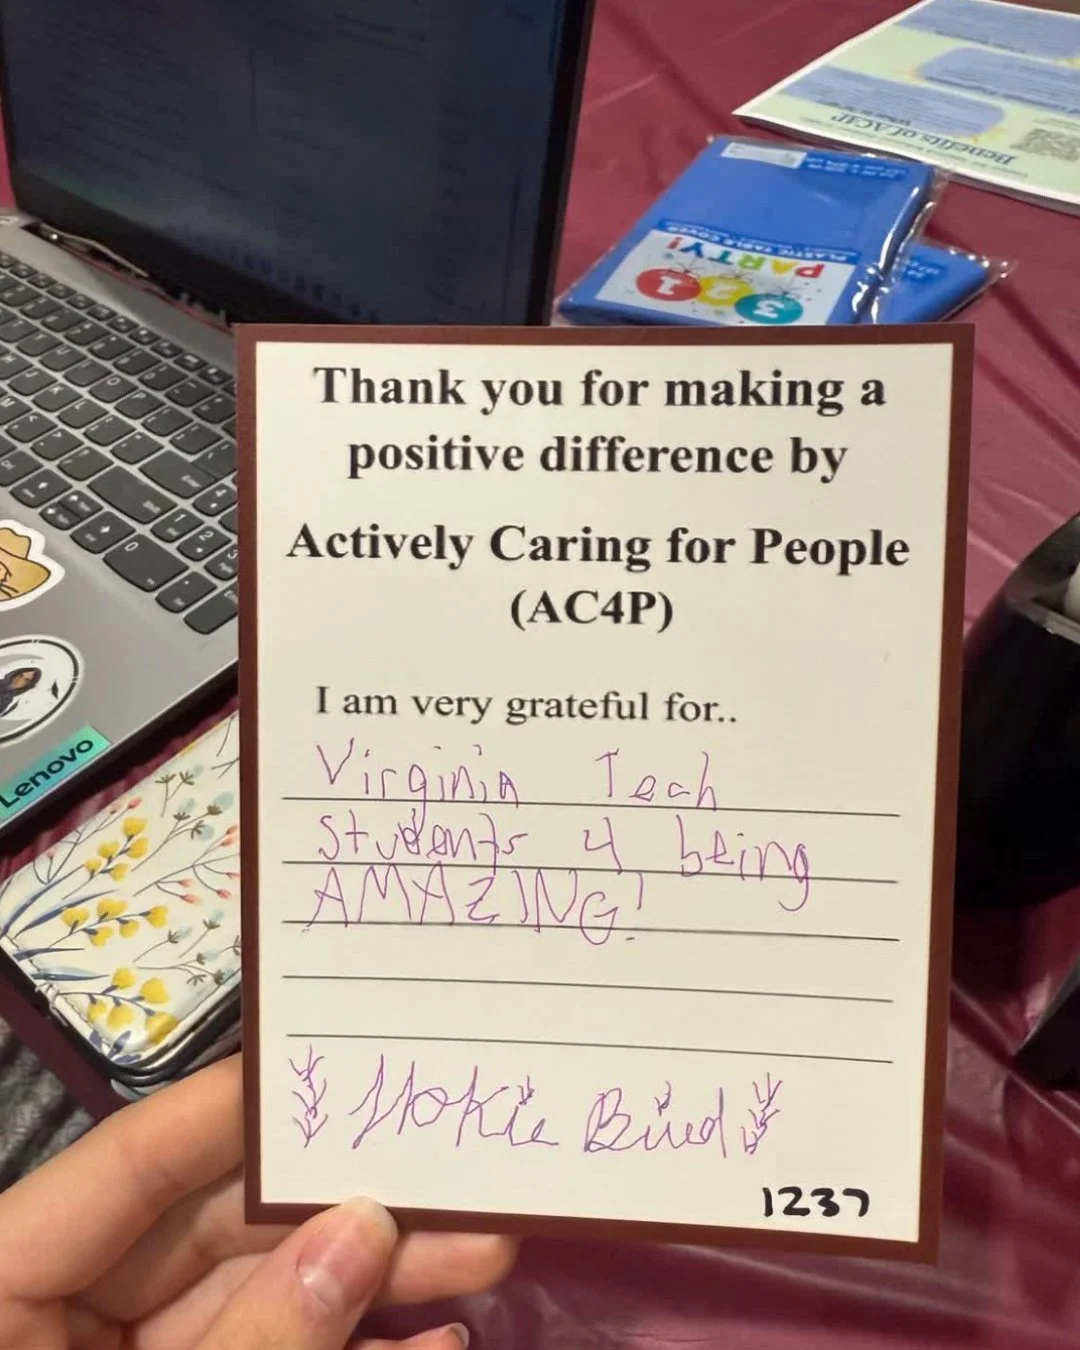 Benefits of AC4P
PLASTIC TABLE COVER
PARTY!
3 2 1
Lenovo
Thank you for making a
positive difference by
Actively Caring for People
(AC4P)
I am very grateful for..
Virginia Tech
students 4 being
AMAZING!
Hokie Bird
1237